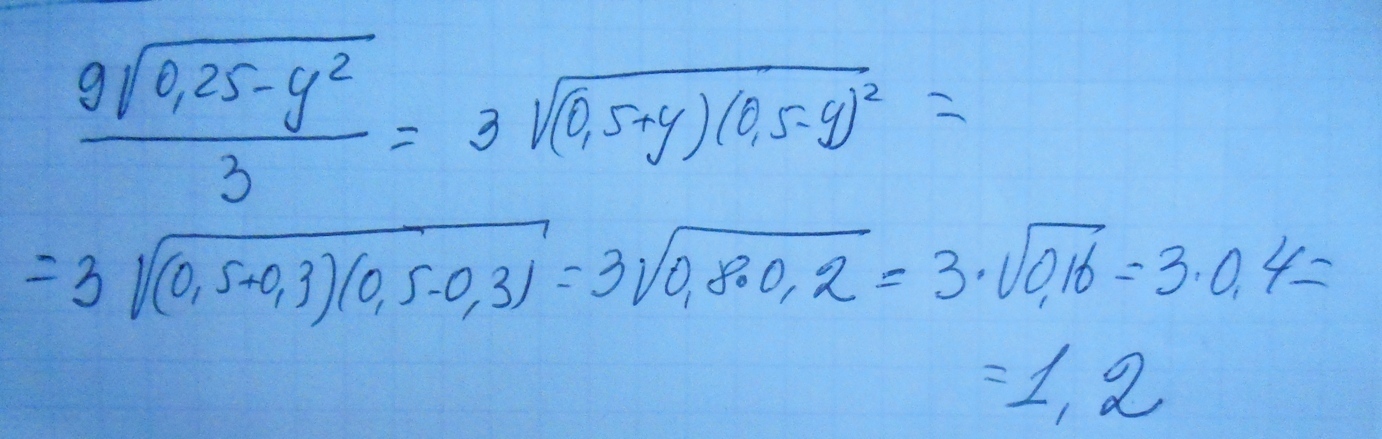 9√(0,25-y²)/3 = 3 √(0,5+y)(0,5-y)² =
= 3 √(0,5+0,3)(0,5-0,3) = 3√0,8·0,2 = 3·√0,16 = 3·0,4=
=1,2